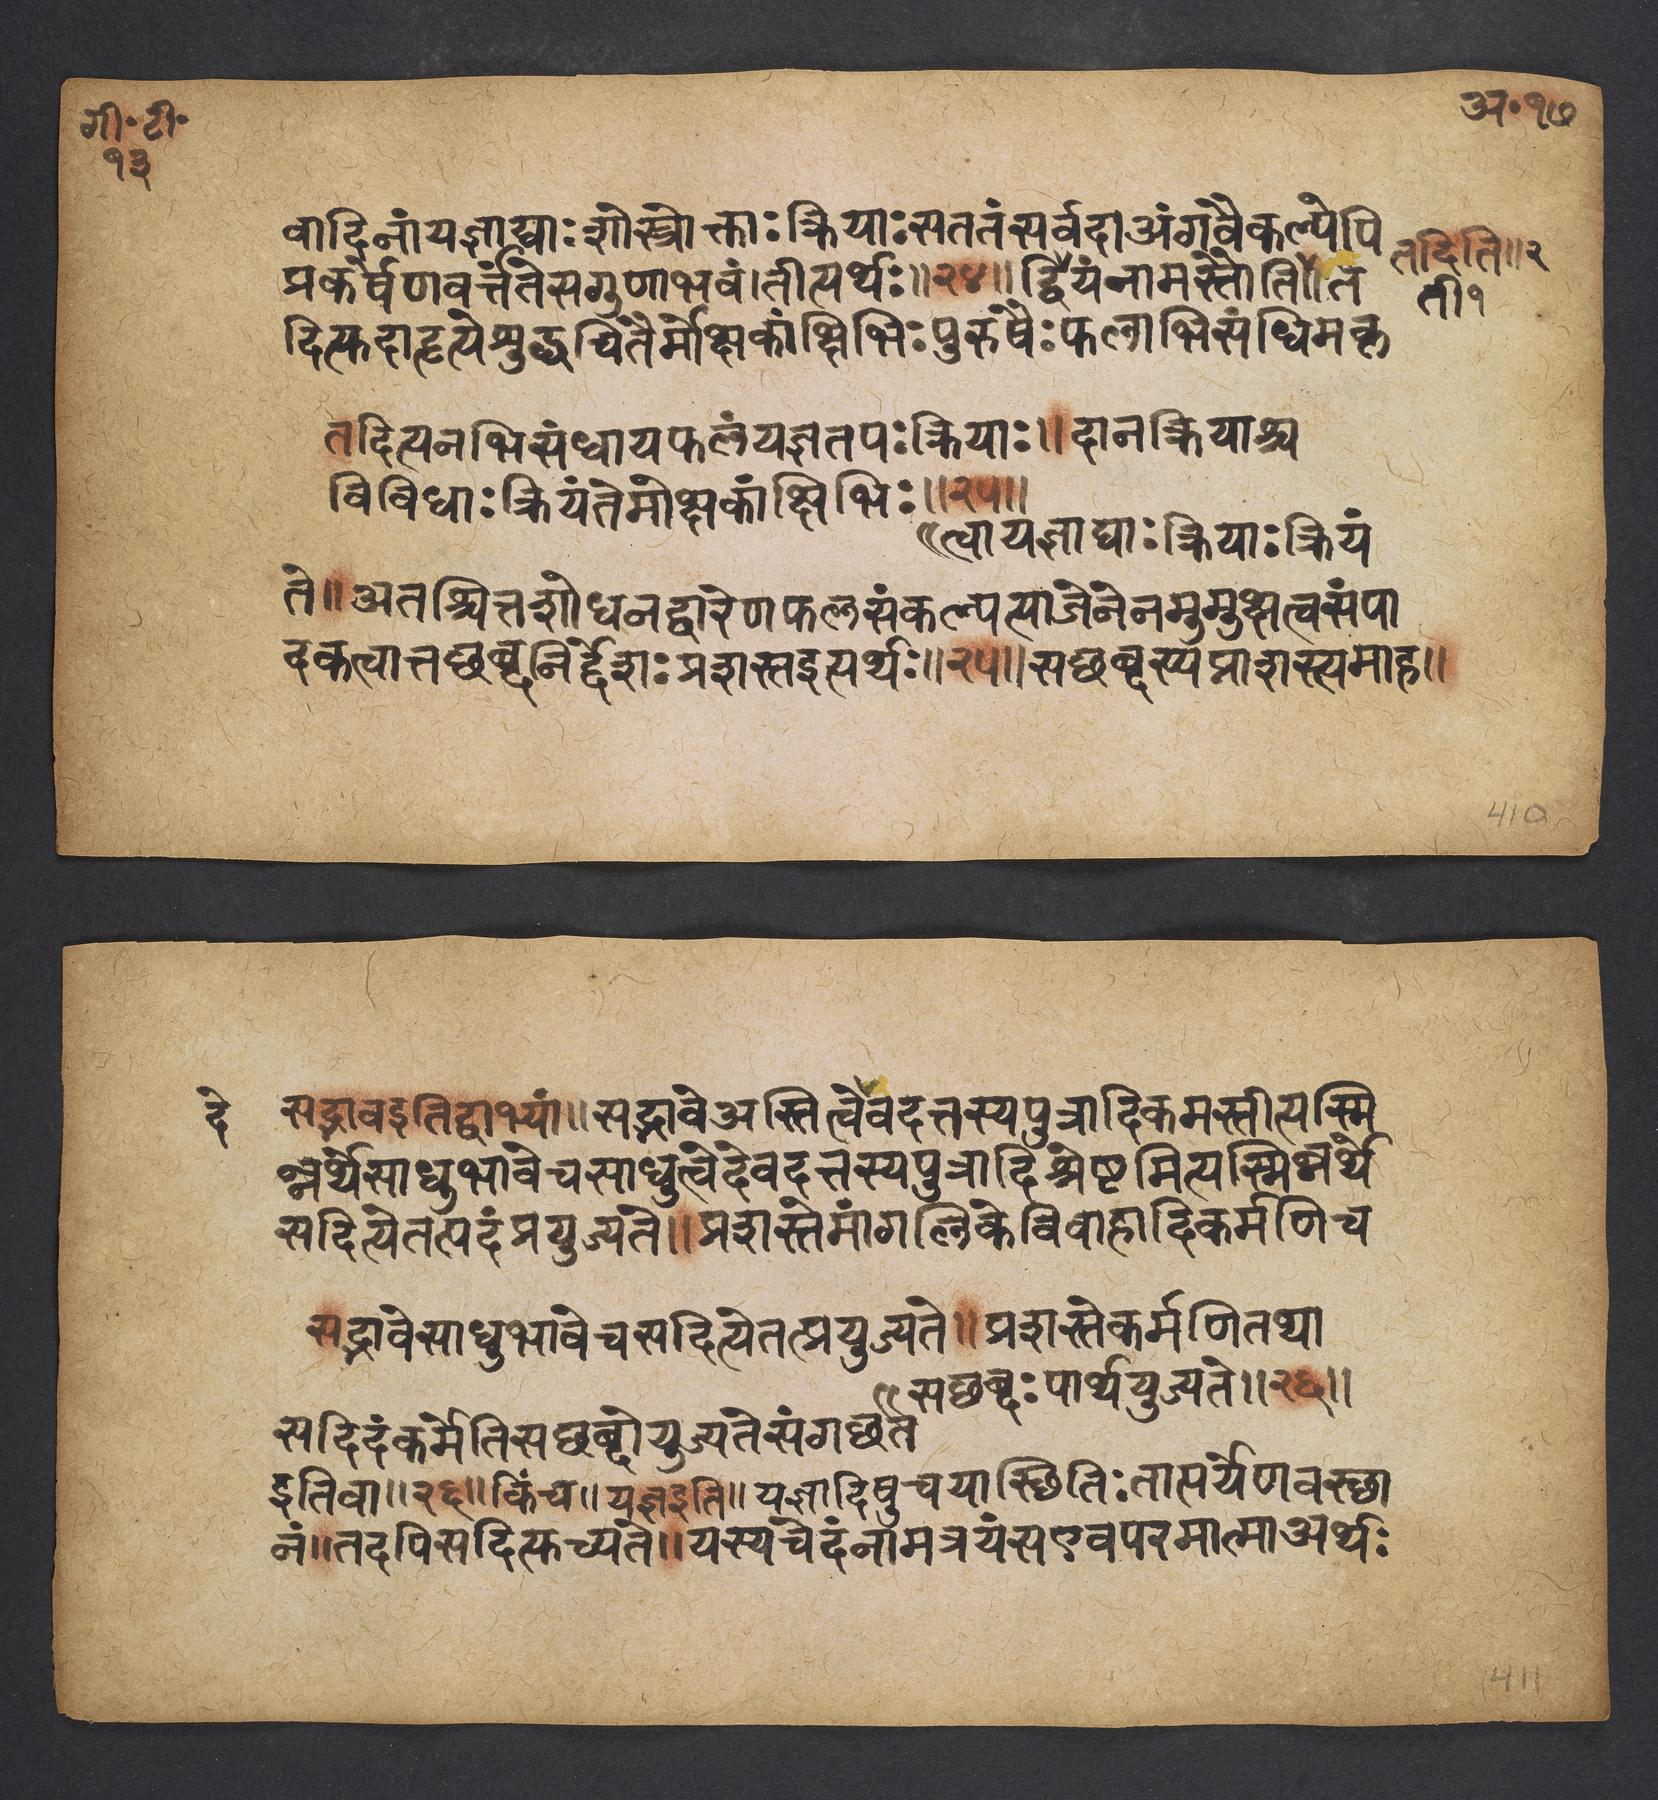 गी॰टी॰
१३
अ॰१७
वादिनांयज्ञाद्याःशोस्त्रोक्ताःक्रियाःसततंसर्वदाअंगवैकल्पेपि
तदिति॥२
प्रकर्षेणवर्त्ततेसगुणाभवं।तीत्यर्थः॥२४॥द्वियंनामस्तौति॥त
ती१
दित्फदाहृत्येशुद्धचितैर्मोक्षकांक्षिभिःपुरुषैःफलाभिसंधिमकृ
तदित्यनभिसंधायफलंयज्ञतपःक्रियाः॥दानक्रियाश्च
विविधाःक्रियंतेमोक्षकांक्षिभिः॥२५॥
त्वायज्ञाद्याःक्रियाःक्रियं
ते॥अतश्चित्तशोधनद्वारेणफलसंकल्पत्याजेनेनमुमुक्षुत्वसंपा
दकत्वात्तछब्दनिर्द्देशःप्रशस्तइत्यर्थः॥२५॥सछब्दस्यप्राशस्त्यमाह॥
410
दे
सद्भावइतिद्वाभ्यां॥सद्भावेअस्तित्वेवदत्तस्यपुत्रादिकमस्तीत्यस्मि
न्नर्थेसाधुभावेचसाधुत्वेदेवदत्तस्यपुत्रादिश्रेष्टमित्यस्मिन्नर्थे
सदित्येतत्पदंप्रयुज्यते॥प्रशस्तेमांगलिकेविवाहादिकर्मणिच
सद्भावेसाधुभावेचसदित्येतत्प्रयुज्यते॥प्रशस्तेकर्मणितथा
सछब्दःपार्थयुज्यते॥२६॥
सदिदंकर्मेतिसछब्दोयुज्यतेसंगछते
इतिवा॥२६॥किंच॥यज्ञइति॥यज्ञादिषुचयास्छितिःतात्पर्येणवस्छा
नं॥तदपिसदित्फच्यते॥यस्यचेदंनामत्रयंसएवपरमात्माअर्थः
411